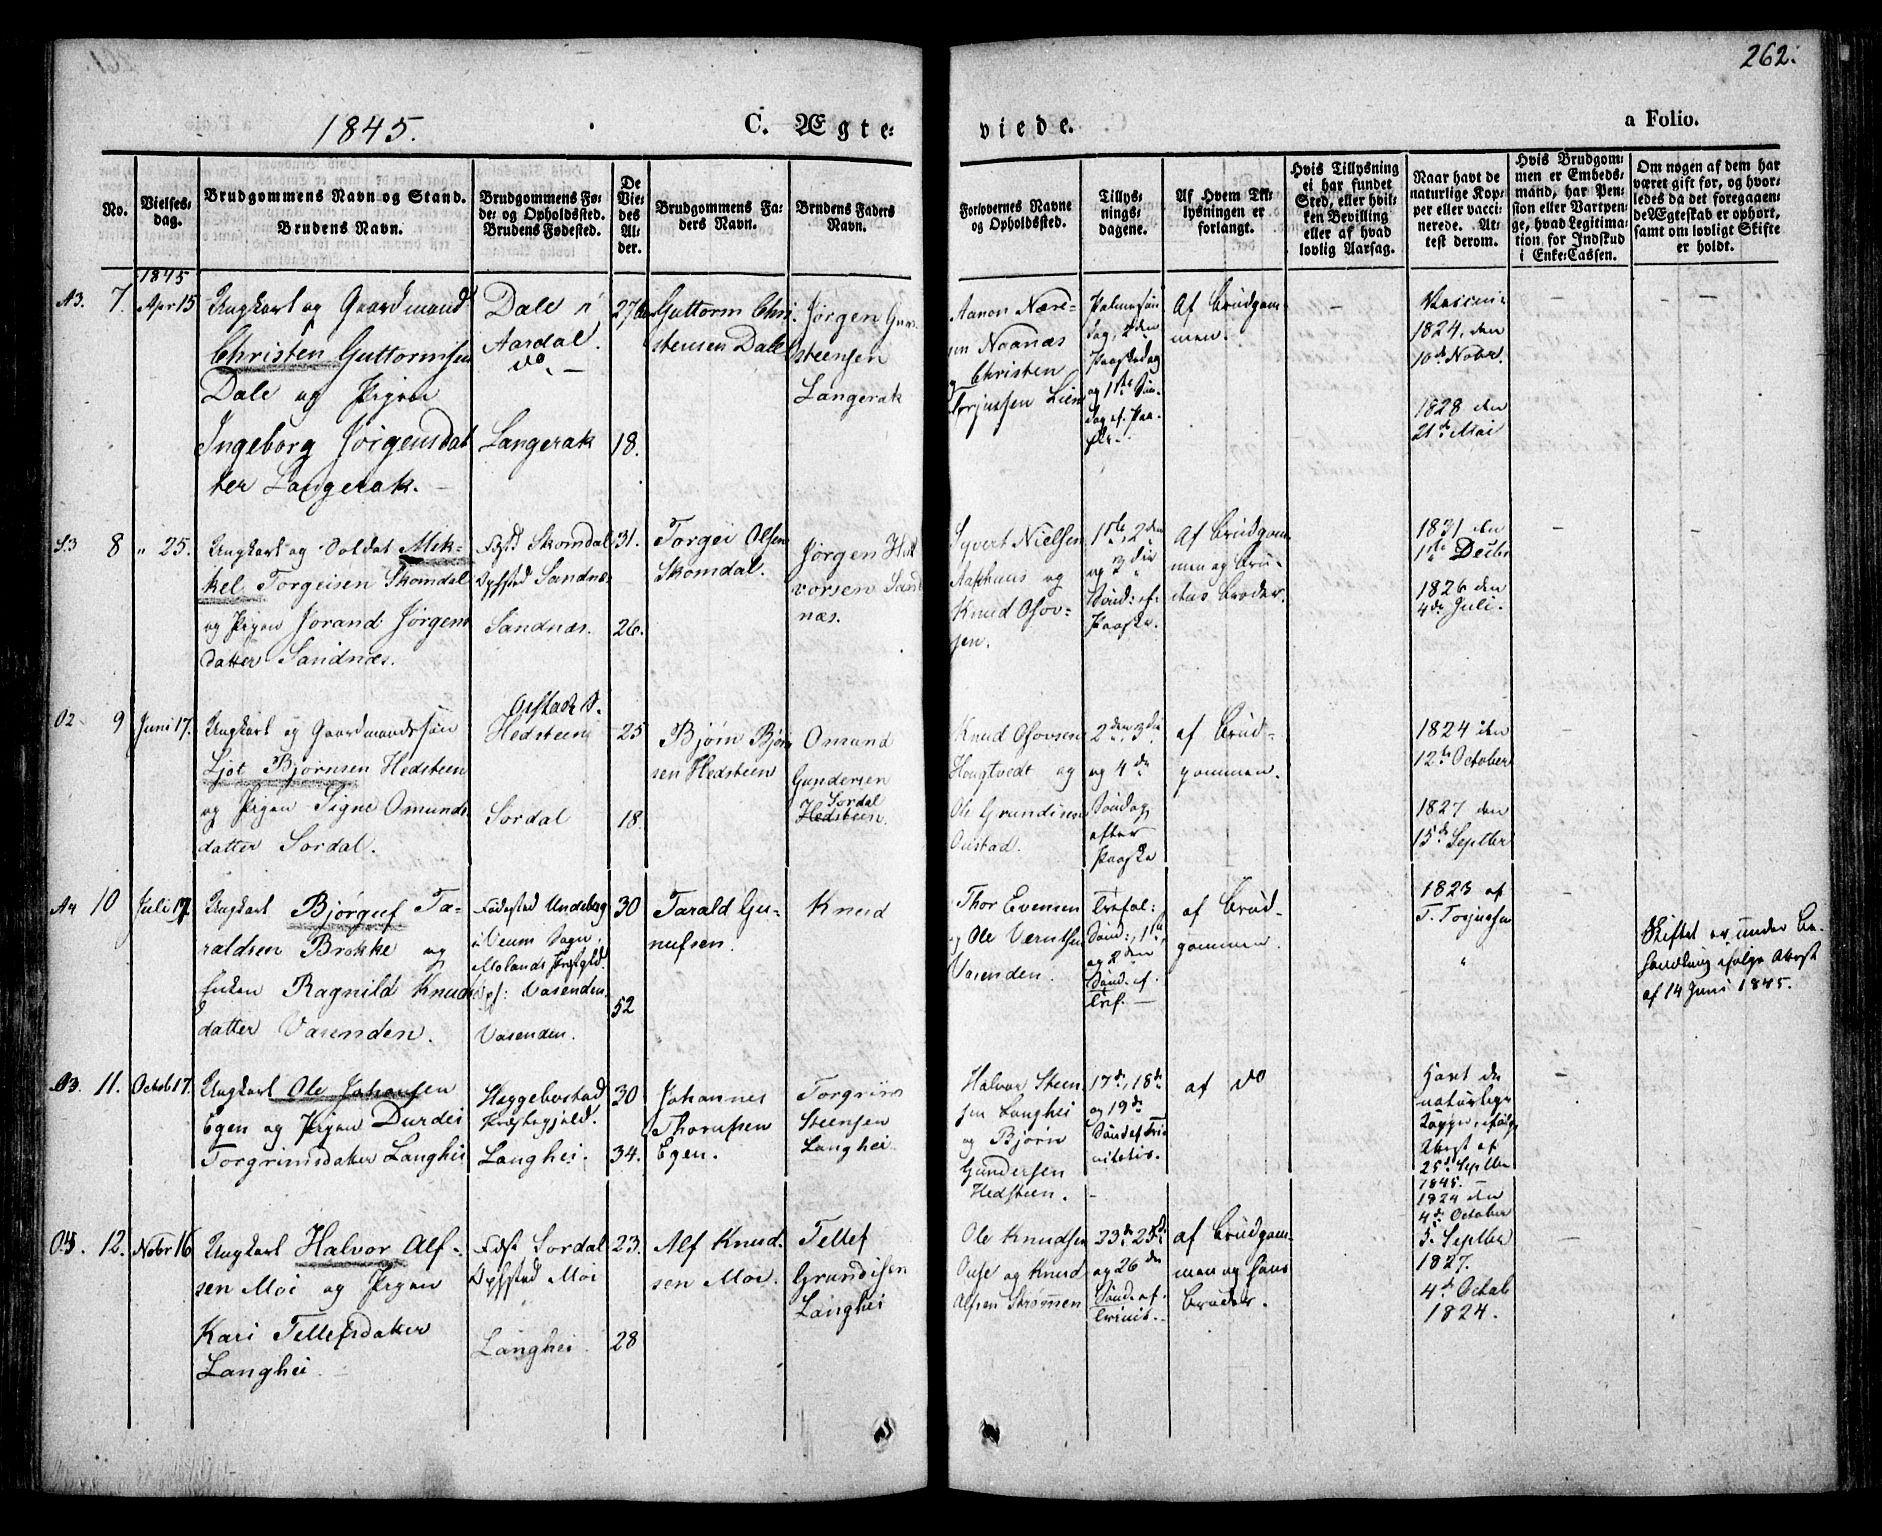 262.
1845.
C. Ægte-
viede.
a Folio.
No.
Vielses-
dag.
Brudgommens Navn og Stand.
Brudens Navn.
Brudgommens Fø-
de- og Opholdssted.
Brudens Fødested.
De
Vie-
des
Al-
der.
Brudgommens Fa-
ders Navn.
Brudens Faders
Navn.
Forlovernes Navne
og Opholdssted.
Tillys-
nings-
dagene.
Af Hvem Til-
lysningen er
forlangt.
Hvis Tillysning
ei har fundet
Sted, eller hvil-
ken Bevilling
eller af hvad
lovlig Aarsag.
Naar havt de
naturlige Kop-
per eller vacci-
nerede. At-
test derom.
Hvis Brudgom-
men er Embeds-
mand, har Pen-
sion eller Vartpen-
ge, hvad Legitima-
tion for Indskud
i Enke-Cassen.
Om nogen af dem har
været gift før, og hvor-
ledes da det foregaaen-
de Ægteskab er ophørt,
samt om lovligt Skifte
er holdt.
1845
A3. 7. Apr 15
Ungkarl og Gaardmand
Christen Guttormsen
Dale og Pigen
Ingeborg Jørgensdat
ter Langerak.
Dale i
Aardal.
do.
Langerak
18.
Guttorm Chri-
stensen Dale
Jørgen
steensen
Langerak
Aanon Næri-
sen Noanæs
og Christen
Torjussen Lien
Palmesøn
dag, 2den
Paaskedag
og 1ste Søn-
dag ef. Paa-
ske.
Af Brudgom-
men.
1824 den
10de Nobr.
1828 den
21de Mai
S3 8 " 25.
Ungkarl og Soldat Mik-
kel Torgeisen Skomdal
og Pigen Jorand Jørgens
datter Sandnæs.
Skomdal
Sandnæs
Sandnæs.
31.
26.
Torgei Olsen
Skomdal.
Jørgen Hal
vorsen Sand
næs.
Syvert Nielsen
Aasphuus og
Knud Osov-
sen.
1ste, 2den
og 3die
Sønd. ef.
Paaske.
Af Brudgom-
men og Bru-
dens Broder.
1831 den
1ste Decbr
1826 den
4de Juli.
O2 9 Juni 17.
Ungkarl og Gaardmandssøn
Ljot Bjørnsen Hedsteen
og Pigen Signe Omunds
datter Sordal.
Hedsteen
Sordal
25
18.
Bjørn Bjørn
sen Hedsteen
Omund
Gundersen
Sordal
Hedsteen.
Knud Osovsen
Hougtvedt og
Ole Grundesen
Oustad.
2den, 3die
og 4de
Søndag
efter
Paaske
af Brud-
gommen.
1824 den
12te October
1827 den
15de Septbr
A4 10 Juli 17.
Ungkarl Bjørguf Ta-
raldsen Brokke og
Enken Ragnild Knuds
datter Vasenden.
Fødested Undeberg
i Veum Sogn,
Molands Præstgld.
Vasenden.
Vasenden.
30
52
Tarald Gu-
nufsen.
Knud
Thor Evensen
og Ole Værnesen
Vasenden.
Trefol:
Sønd:, 1ste
og 2den
Sønd. ef.
Tref.
af Brud-
gommen.
1823 af
T. Torjussen
"
Skiftet er under Be-
handling ifølge Attest
af 14 Juni 1845.
A3. 11. Octob 17.
Ungkarl Ole Johansen
Egen og Pigen Durdei
Torgrimsdatter Langhei
Heggebostad
Præstegjeld.
Langhei.
30
34.
Johannes
Thorufsen
Egen.
Torgrim
Steensen
Langhei.
Halvor Steen
sen Langhei
og Bjørn
Gundersen
Hedsteen.
17de, 18de
og 19de
Sønd ef Tri
nitatis.
af do
Havt de
naturlige
Kopper, ifølge
Attest af
25de Septbr
1845.
O4. 12. Nobr 16
Ungkarl Halvor Alf-
sen Moi og Pigen
Kari Tellefsdatter
Langhei.
Født Sordal
Opfsted Moi
Langhei.
23.
28
Alf Knud
sen Moi.
Tellef
Grundesen
Langhei
Ole Knudsen
Ouse og Knud
Alfsen Strømmen
23de 25de
og 26de
Sønd. ef.
Trinit.
af Brudgom-
men og hans
Broder.
1824 den
4de October
Septbr
1827.
4de Octob
1824.